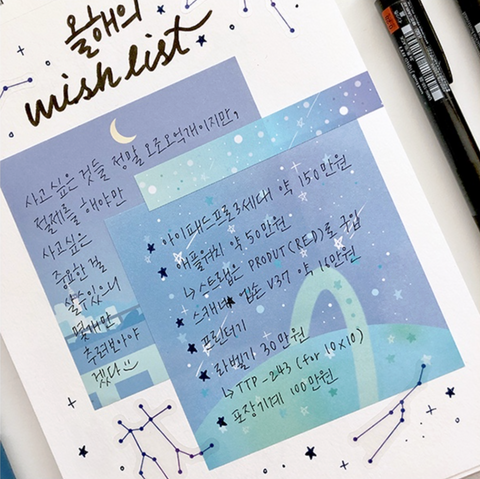 올해의
wish list
사고싶은 것들 정말 오조오억개이지만,
절제를 해야만
사고싶은
중요한 걸
살 수 있으니
몇개만
추려보아야
겠다
아이패드프로3세대 약 150만원
애플워치 약 50만원
↳ 스트랩은 PRODUT(RED)로 구입
스캐너 엡손 V37 약 16만원
프린터기
라벨기 30만원
↳ TTP-243 (for 10X10)
포장기계 100만원